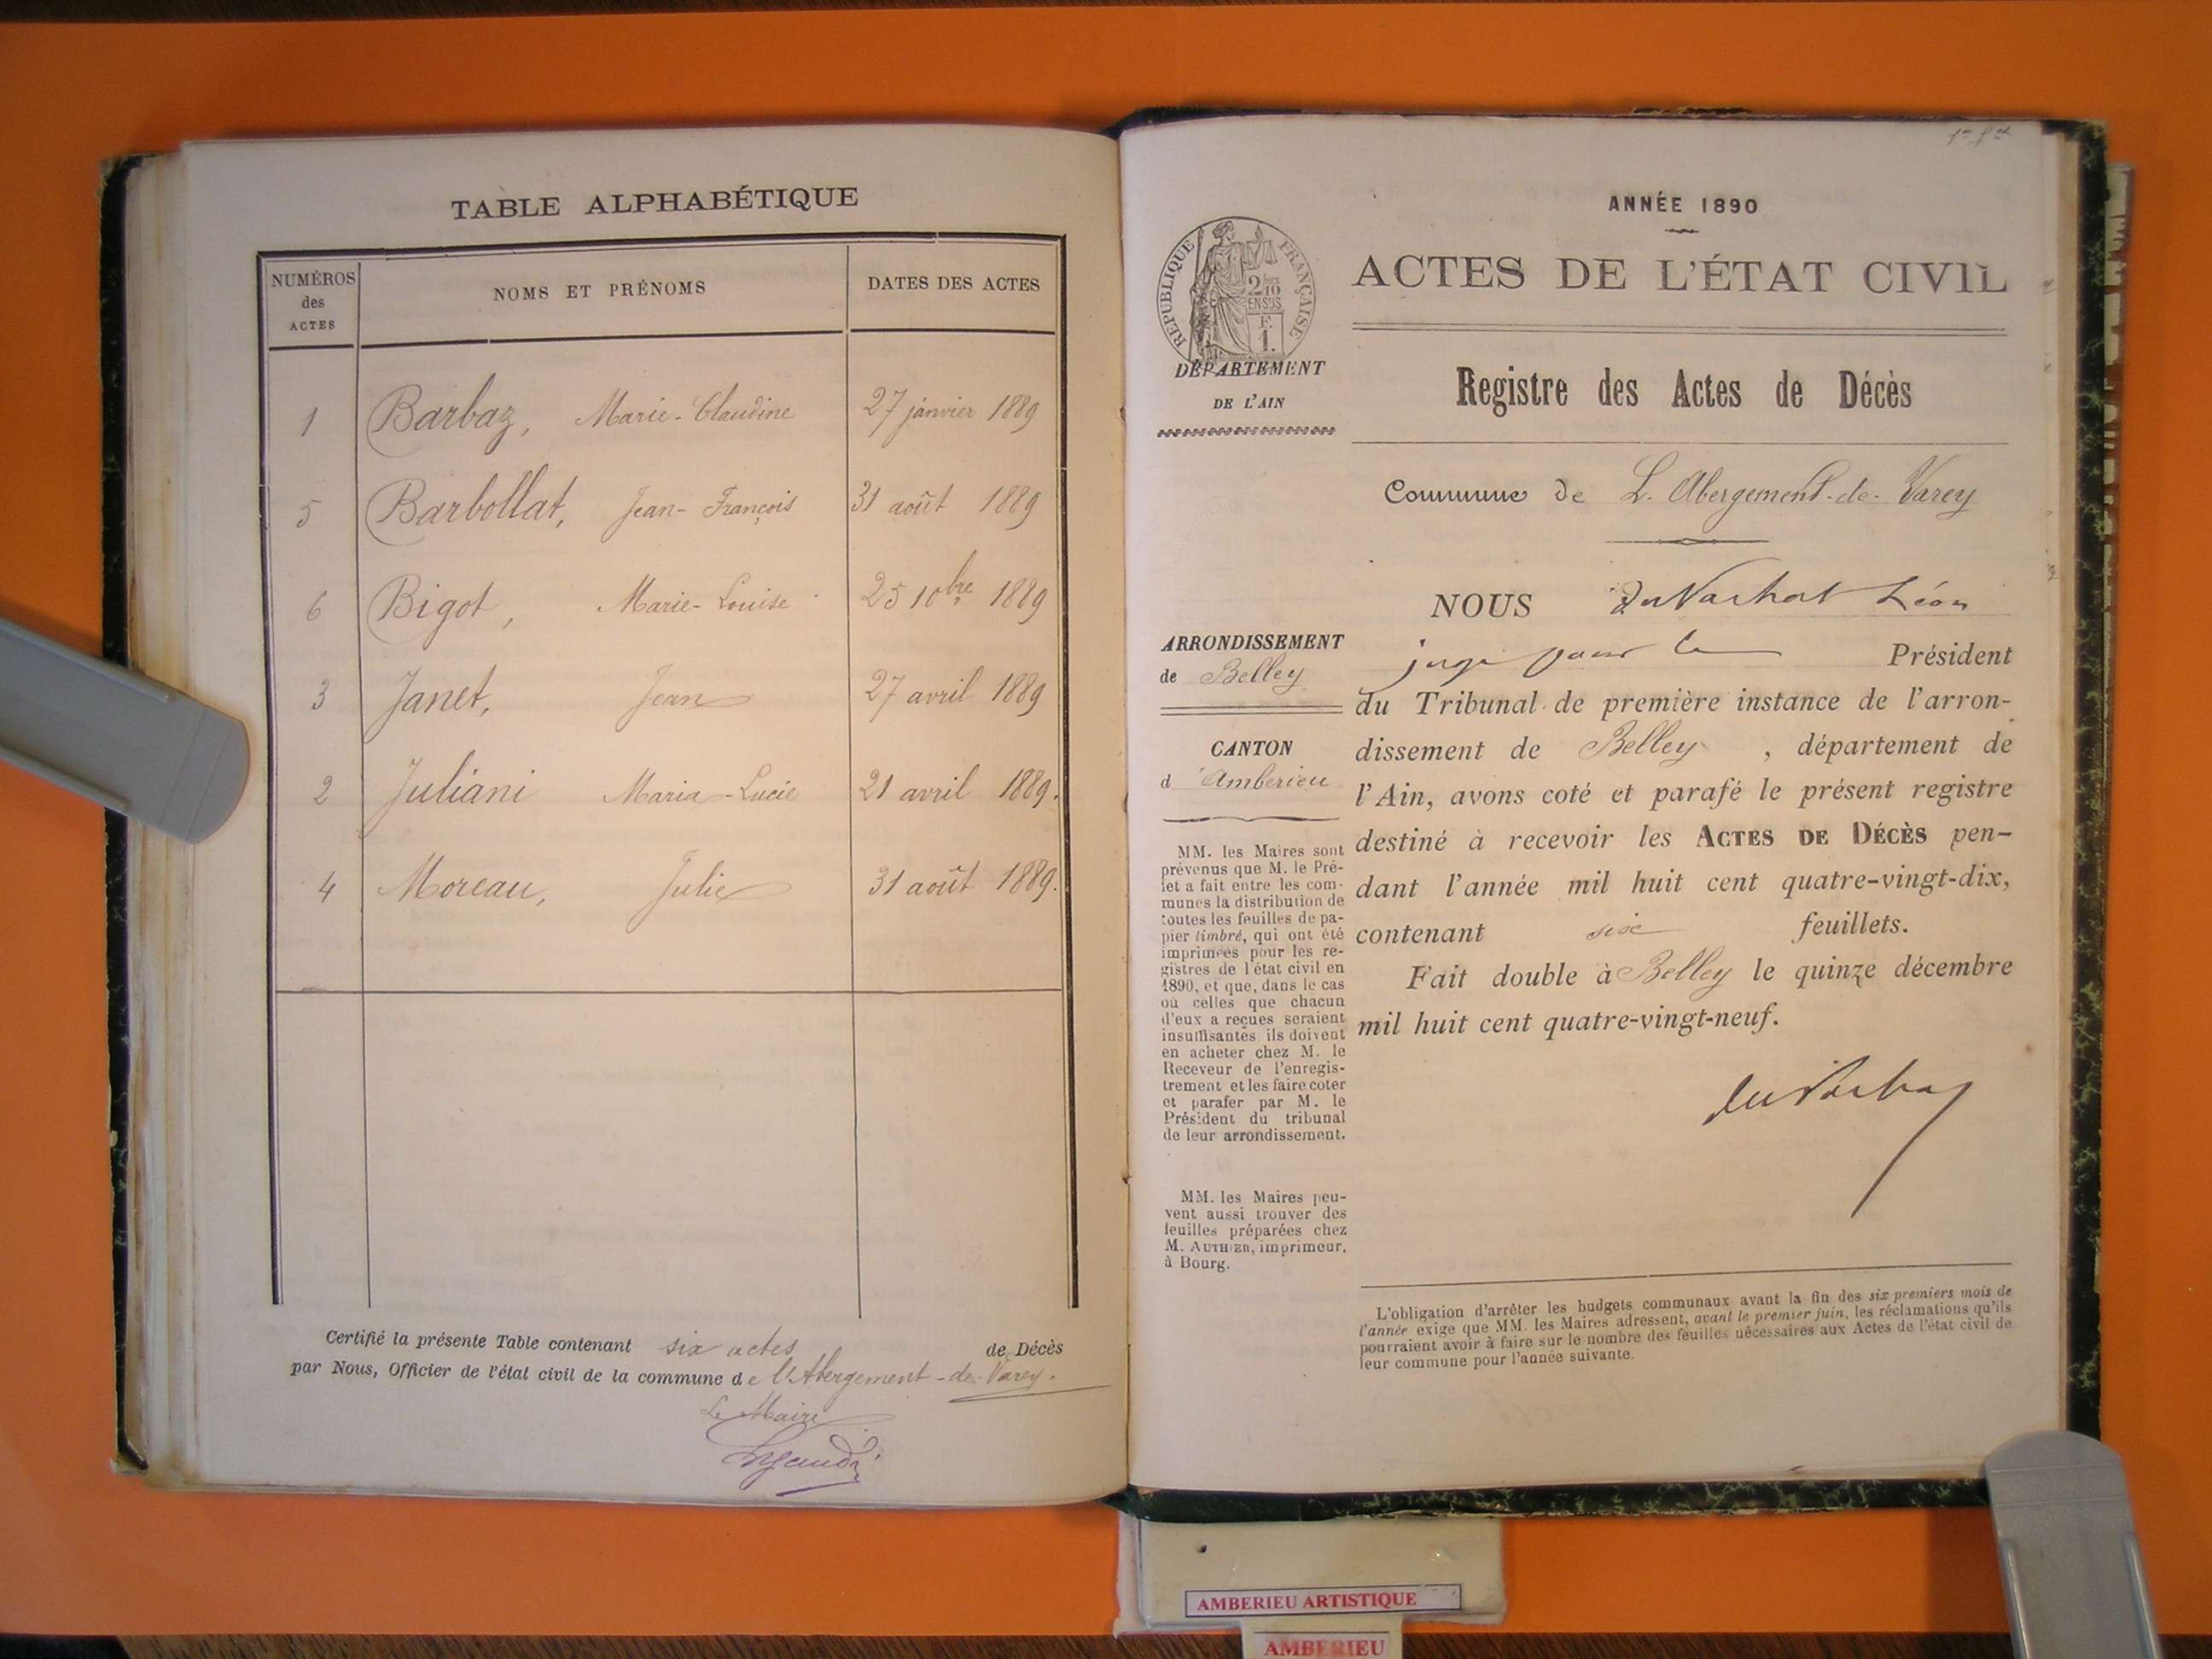 TABLE ALPHABÉTIQUE
NUMÉROS
des
ACTES
NOMS ET PRÉNOMS
DATES DES ACTES
1 Barbaz, Marie-Claudine 27 janvier 1889
5 Barbollat, Jean-François 31 août 1889
6 Bigot, Marie-Louise 25 10bre 1889
3 Janet, Jean 27 avril 1889
2 Juliani Maria-Lucie 21 avril 1889.
4 Moreau, Julie 31 août 1889.
Certifié la présente Table contenant six actes de Décès
par Nous, Officier de l'état civil de la commune de l'Abergement-de-Varey.
Le Maire
ANNÉE 1890
RÉPUBLIQUE FRANÇAISE
2/10
EN SUS
F.
1.
ACTES DE L'ÉTAT CIVIL
DÉPARTEMENT
DE L'AIN
Registre des Actes de Décès
Commune de L'Abergement-de-Varey
NOUS Léon
juge pour le Président
du Tribunal de première instance de l'arron-
dissement de Belley, département de
l'Ain, avons coté et parafé le présent registre
destiné à recevoir les ACTES DE DÉCÈS pen-
dant l'année mil huit cent quatre-vingt-dix,
contenant six feuillets.
Fait double à Belley le quinze décembre
mil huit cent quatre-vingt-neuf.
ARRONDISSEMENT
de Belley
CANTON
d'Amberieu
MM. les Maires sont
prévenus que M. le Pré-
fet a fait entre les com-
munes la distribution de
toutes les feuilles de pa-
pier timbré, qui ont été
imprimées pour les re-
gistres de l'état civil en
1890, et que, dans le cas
où celles que chacun
d'eux a reçues seraient
insuffisantes ils doivent
en acheter chez M. le
Receveur de l'enregis-
trement et les faire coter
et parafer par M. le
Président du tribunal
de leur arrondissement.
MM. les Maires peu-
vent aussi trouver des
feuilles préparées chez
M. AUTHIER, imprimeur,
à Bourg.
L'obligation d'arrêter les budgets communaux avant la fin des six premiers mois de
l'année exige que MM. les Maires adressent, avant le premier juin, les réclamations qu'ils
pourraient avoir à faire sur le nombre des feuilles nécessaires aux Actes de l'état civil de
leur commune pour l'année suivante.
AMBERIEU ARTISTIQUE
AMBERIEU